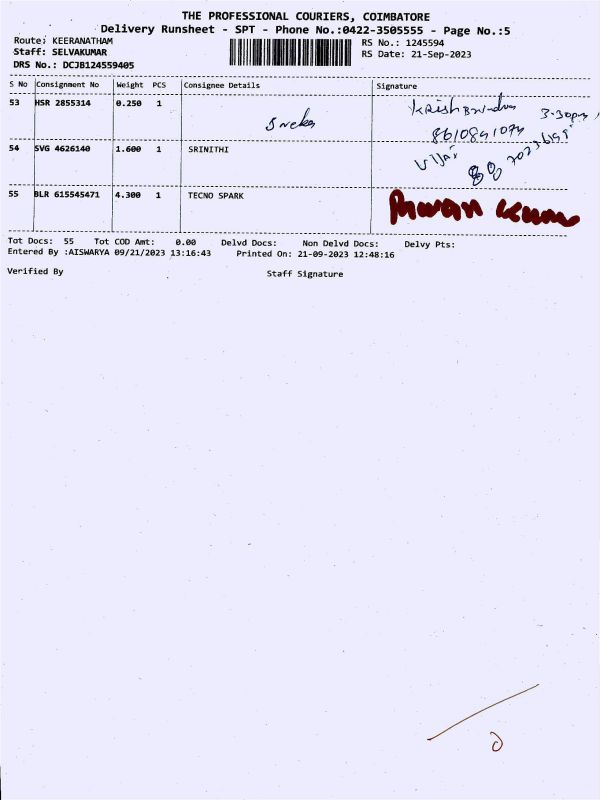 THE PROFESSIONAL COURIERS, COIMBATORE
Delivery Runsheet - SPT - Phone No.:0422-3505555 - Page No.:5
Route: KEERANATHAM RS No.: 1245594
Staff: SELVAKUMAR RS Date: 21-Sep-2023
DRS No.: DCJB124559405
S No Consignment No Weight PCS Consignee Details Signature
53 HSR 2855314 0.250 1 Sneka 3.30pm
8610841074
54 SVG 4626140 1.600 1 SRINITHI Vijai
55 BLR 615545471 4.300 1 TECNO SPARK
Tot Docs: 55 Tot COD Amt: 0.00 Delvd Docs: Non Delvd Docs: Delvy Pts:
Entered By :AISWARYA 09/21/2023 13:16:43 Printed On: 21-09-2023 12:48:16
Verified By Staff Signature